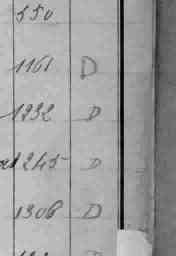 550
1161 D
1232 D
1245 D
1306 D
D